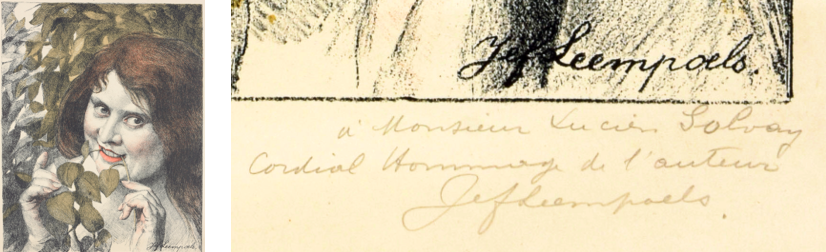 Jef Leempoels.
Jef Leempoels.
à Monsieur Lucien Solvay
Cordial Hommage de l'auteur
Jef Leempoels.